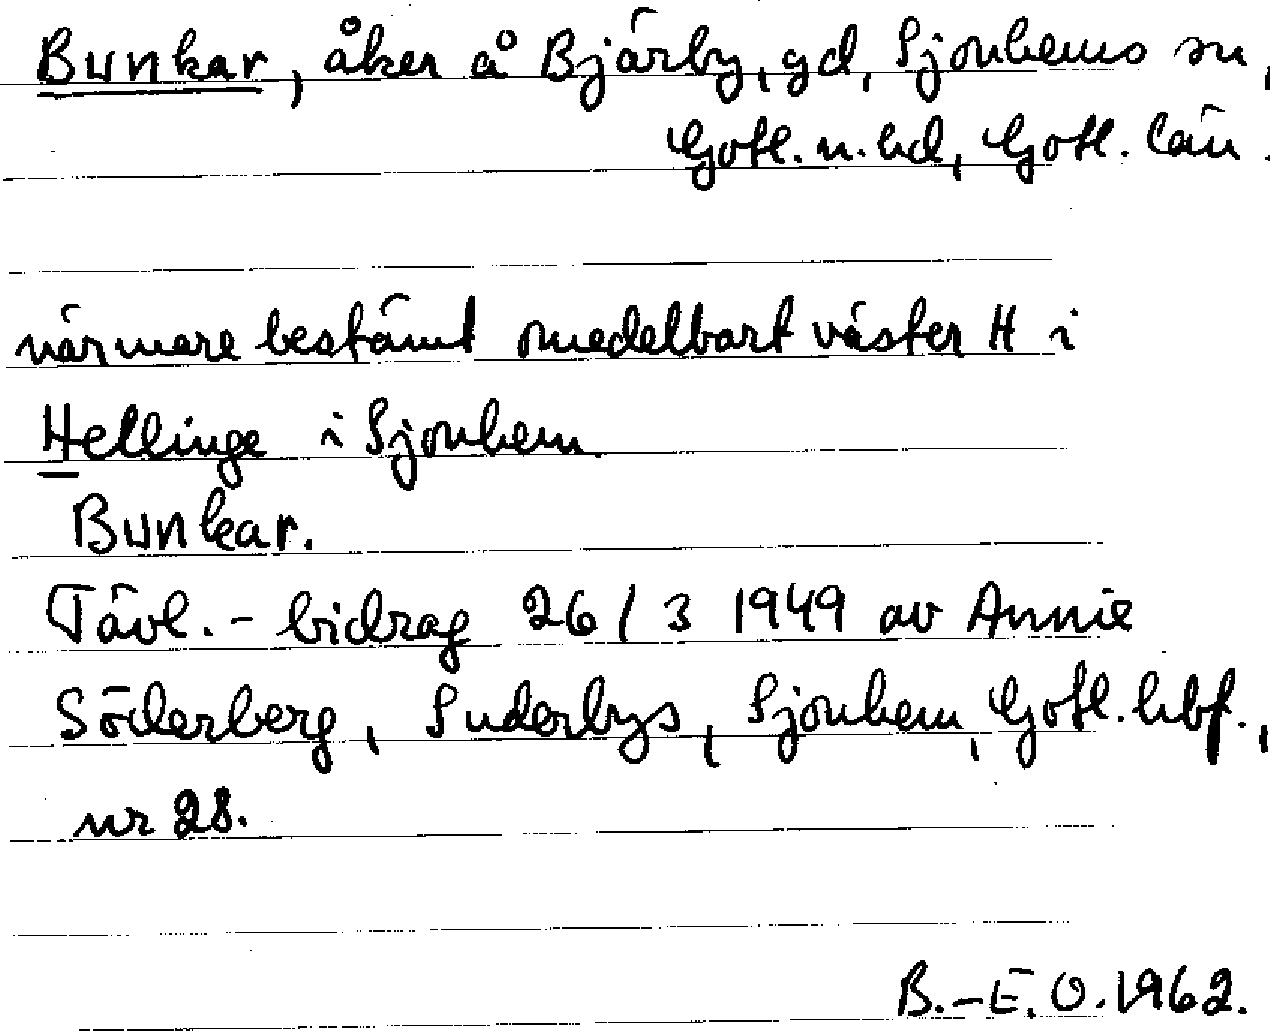 Bunkar, åker å Bjärby, gd, Sjonhems sn,
Gotl. n. hd, Gotl. län.
närmare bestämt omedelbart väster H i
Hellinge i Sjonhem
Bunkar.
Tävl.-bidrag 26/3 1949 av Annie
Söderberg, Suderbys, Sjonhem, Gotl. hbf.,
nr 28.
B.-E. O. 1962.